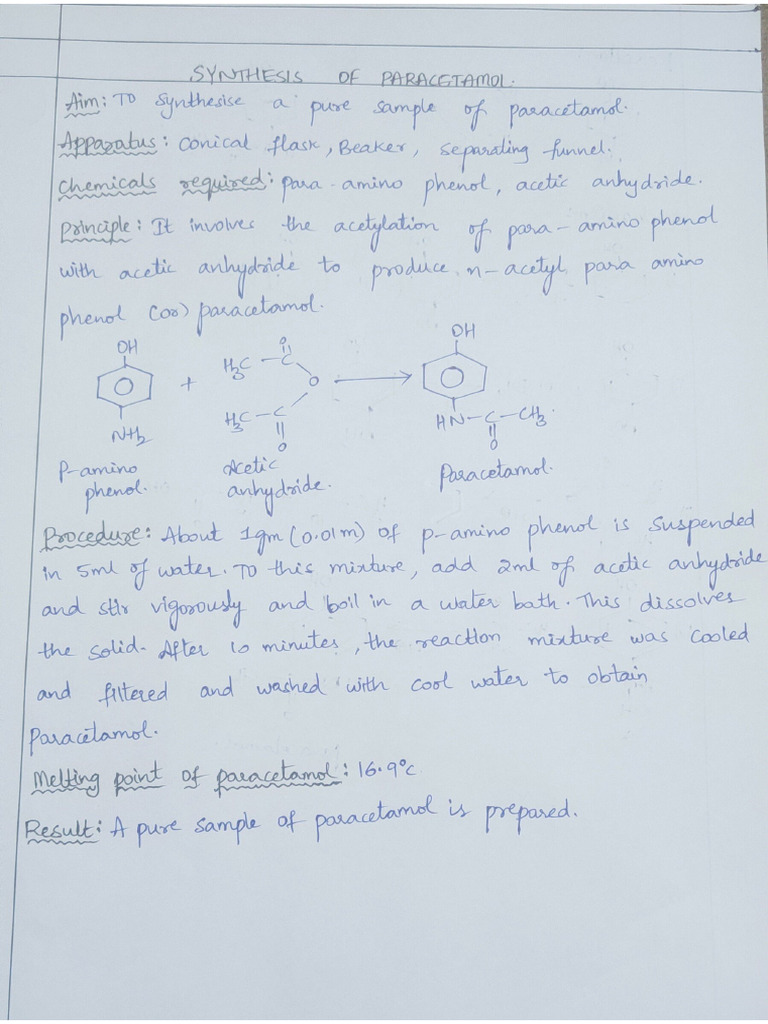 SYNTHESIS OF PARACETAMOL.
Aim: To synthesise a pure sample of paracetamol.
Apparatus: Conical flask, Beaker, separating funnel.
Chemicals required: para-amino phenol, acetic anhydride.
Principle: It involves the acetylation of para-amino phenol
with acetic anhydride to produce n-acetyl para amino
phenol (or) paracetamol.
OH
NH2
+
H3C-C
O
O
H3C-C
O
OH
HN-C-CH3
O
P-amino
phenol.
Acetic
anhydride.
Paracetamol.
Procedure: About 1gm (0.01m) of p-amino phenol is suspended
in 5ml of water. To this mixture, add 2ml of acetic anhydride
and stir vigorously and boil in a water bath. This dissolves
the solid. After 10 minutes, the reaction mixture was cooled
and filtered and washed with cool water to obtain
Paracetamol.
Melting point of paracetamol: 16.9°c
Result: A pure sample of paracetamol is prepared.